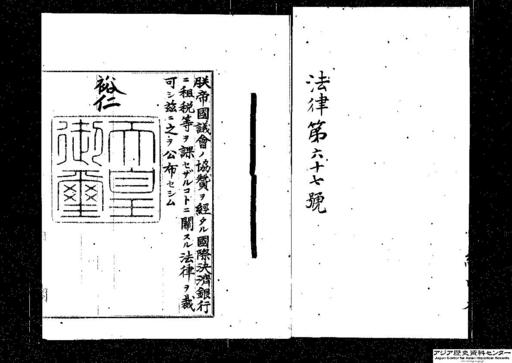 法律第六十七號
朕帝國議會ノ協贊ヲ經タル國際決濟銀行
ニ租税等ヲ課セザルコトニ關スル法律ヲ裁
可シ茲ニ之ヲ公布セシム
裕仁
天皇
御璽
アジア歴史資料センター
Japan Center for Asian Historical Records